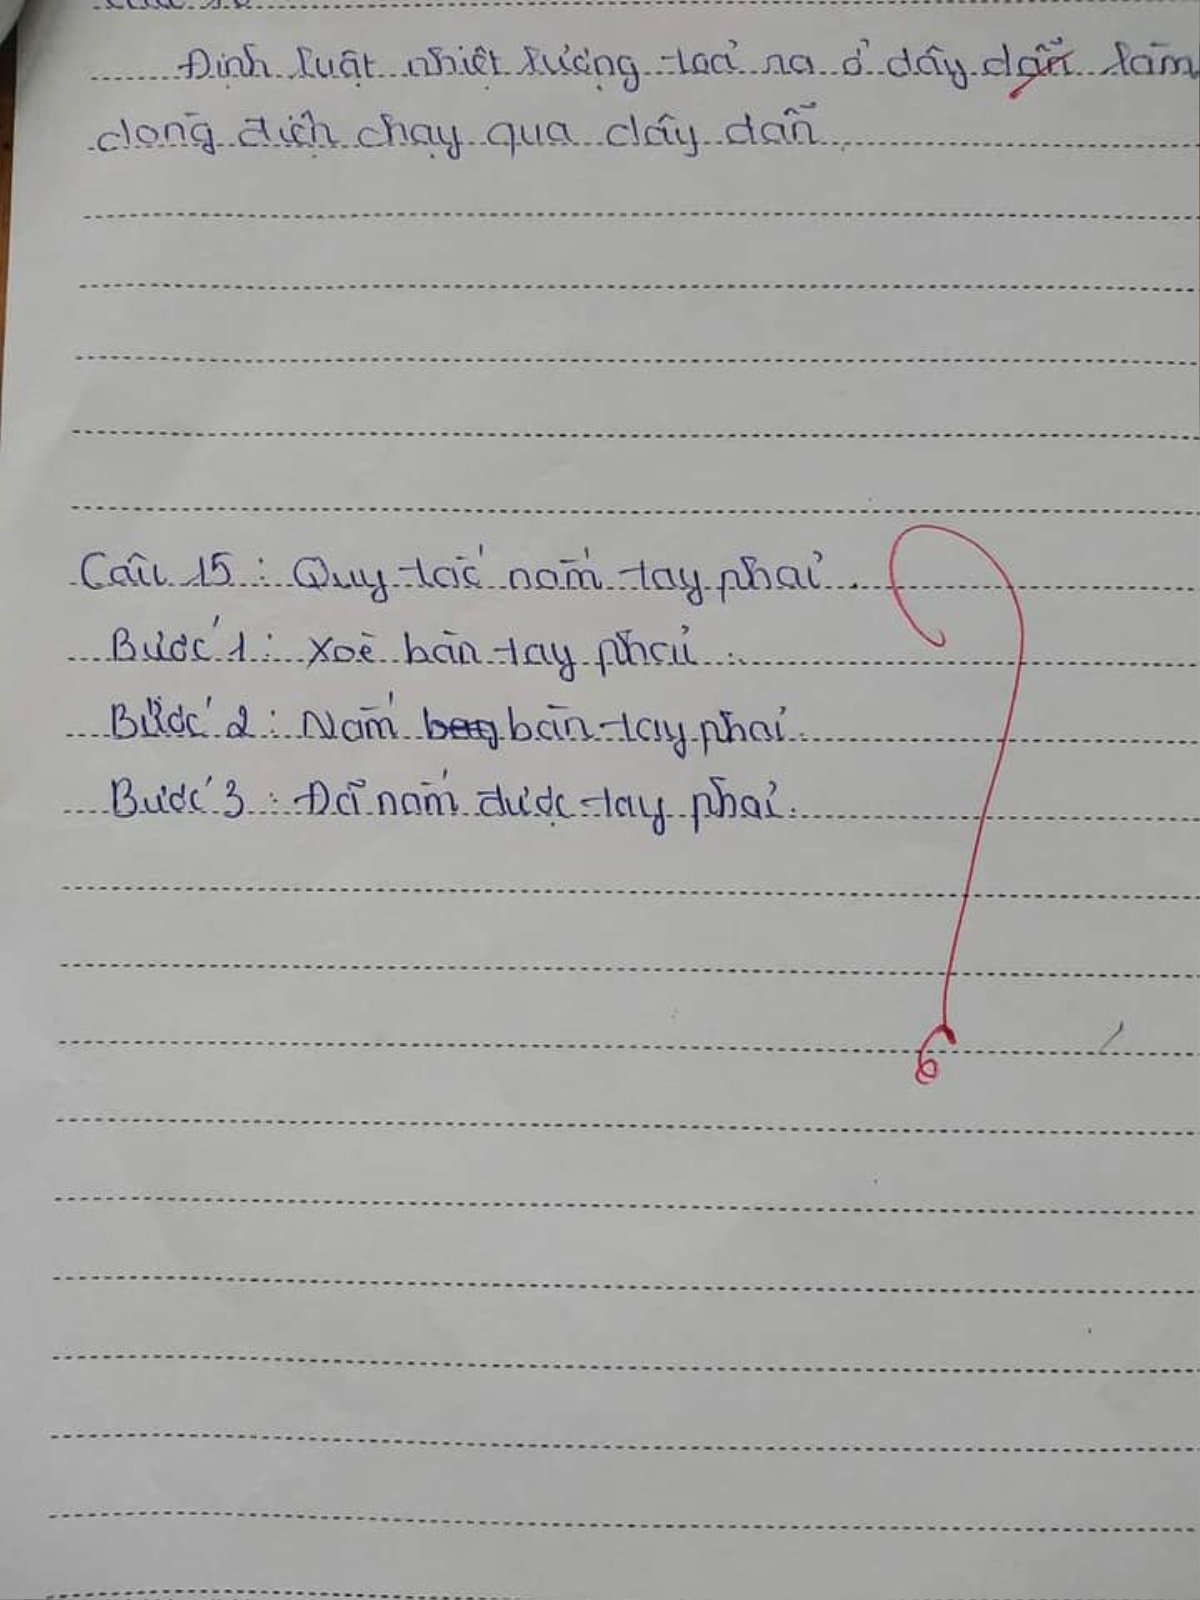 Định luật nhiệt lượng toả ra ở dây dẫn làm
dòng địch chạy qua dây dẫn
Câu 15 : Quy tắc nắm tay phải .
Bước 1 : Xoè bàn tay phải .
Bước 2 : Nắm bàn tay phải .
Bước 3 : Đã nắm được tay phải .